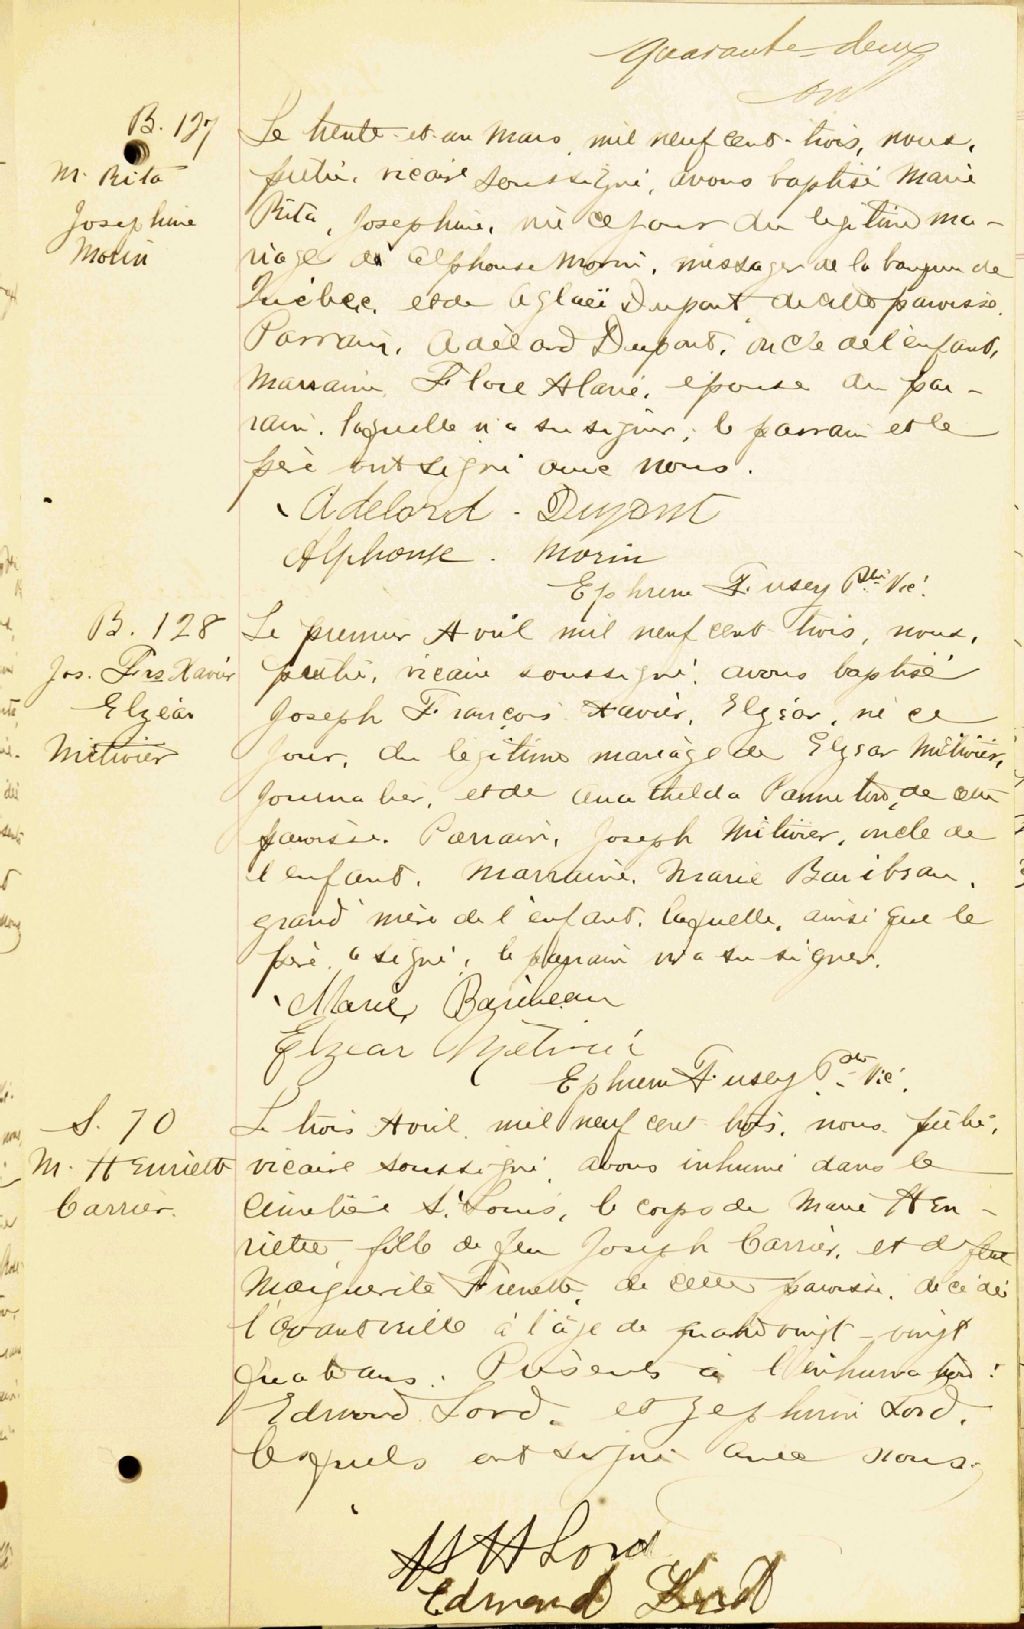 quarante-deux
B. 127
M. Rita
Josephine
Morin
Le trente-et-un Mars, mil neuf cent-trois, nous,
prêtre, vicaire soussigné, avons baptisé Marie
Rita, Josephine, née ce jour du legitime ma-
riage de Alphonse Morin, messager de la banque de
Québec, et de Aglaë Dupont, de cette paroisse.
Parrain, Adélard Dupont, oncle de l'enfant,
Marraine, Flore Alarie, épouse du par-
rain, laquelle n'a su signer; le parrain et le
père ont signé avec nous.
Adelard Dupont
Alphonse Morin
Ephrem Fusey Ptre Vic.
B. 128
Jos. Frs Xavier
Elzéar
Métivier
Le premier Avril mil neuf cent trois, nous,
prêtre, vicaire soussigné, avons baptisé
Joseph François Xavier, Elzéar, né ce
jour, du légitime mariage de Elzear Métivier,
journalier, et de Panneton, de cette
paroisse. Parrain, Joseph Métivier, oncle de
l'enfant, Marraine, Marie Baribeau,
grand'mère de l'enfant, laquelle, ainsi que le
père a signé, le parrain n'a su signer.
Marie Baribeau
Elzear Métivié
Ephrem Fusey Ptre Vic.
S. 70
M. Henriette
Carrier.
Le trois Avril, mil neuf cent trois, nous prêtre,
vicaire soussigné, avons inhumé dans le
Cimetière St. Louis, le corps de Marie Hen-
riette, fille de feu Joseph Carrier, et de feue
Marguerite Frenette, de cette paroisse, décédée
l'avant veille à l'âge de quatre vingt-
quatre ans. Présents à l'inhumation:
Edmond Lord, et Zephirin Lord,
lesquels ont signé avec nous.
Lord
Edmond Lord